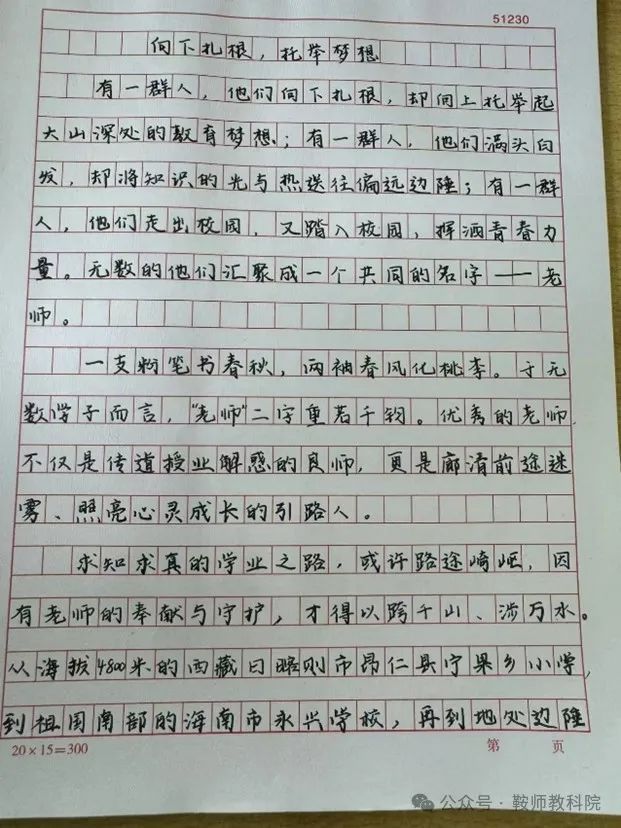 51230
向下扎根，托举梦想
有一群人，他们向下扎根，却向上托举起
大山深处的教育梦想；有一群人，他们满头白
发，却将知识的光与热送往偏远边陲；有一群
人，他们走出校园，又踏入校园，挥洒青春力
量。无数的他们汇聚成一个共同的名字——老
师。
一支粉笔书春秋，两袖春风化桃李。于无
数学子而言，“老师”二字重若千钧。优秀的老师，
不仅是传道授业解惑的良师，更是廓清前途迷
雾、照亮心灵成长的引路人。
求知求真的学业之路，或许路途崎岖，因
有老师的奉献与守护，才得以跨千山、涉万水。
从海拔4800米的西藏日喀则市昂仁县宁果乡小学，
到祖国南部的海南市永兴学校，再到地处边陲
20×15=300 第 页
公众号·鞍师教科院